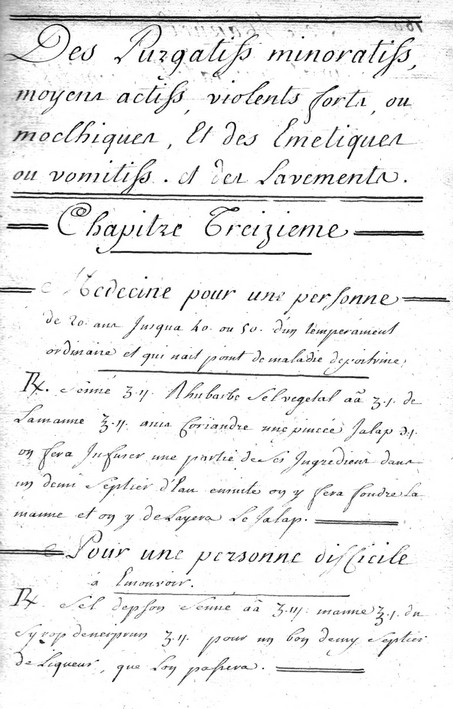 Des Purgatifs minoratifs,
moyens actifs, violents forts, ou
moclhiques, Et des Emetiques
ou vomitifs. et des Lavements.
Chapitre Treizieme
Medecine pour une personne
de 20. ans Jusqua 40. ou 50. d'un temperament
ordinaire et qui nait point de maladie de poitrine
℞. Senné ʒ.ii. Rhubarbe Sel vegetal aã ʒ.i. de
La manne ʒ.ii. anis Coriandre une pincée Jalap
on fera Infuser une partie de ses Ingredient dans
un demi Septier d'Eau ensuite on y fera fondre La
manne et on y delayera Le Jalap.
Pour une personne difficile
à Emouvoir.
℞. Sel depson Senne aã ʒ.iii. manne ʒ.i. du
Syrop denerprun ʒ.ii. pour un bon demy Septier
de Liqueur, que Lon passera.